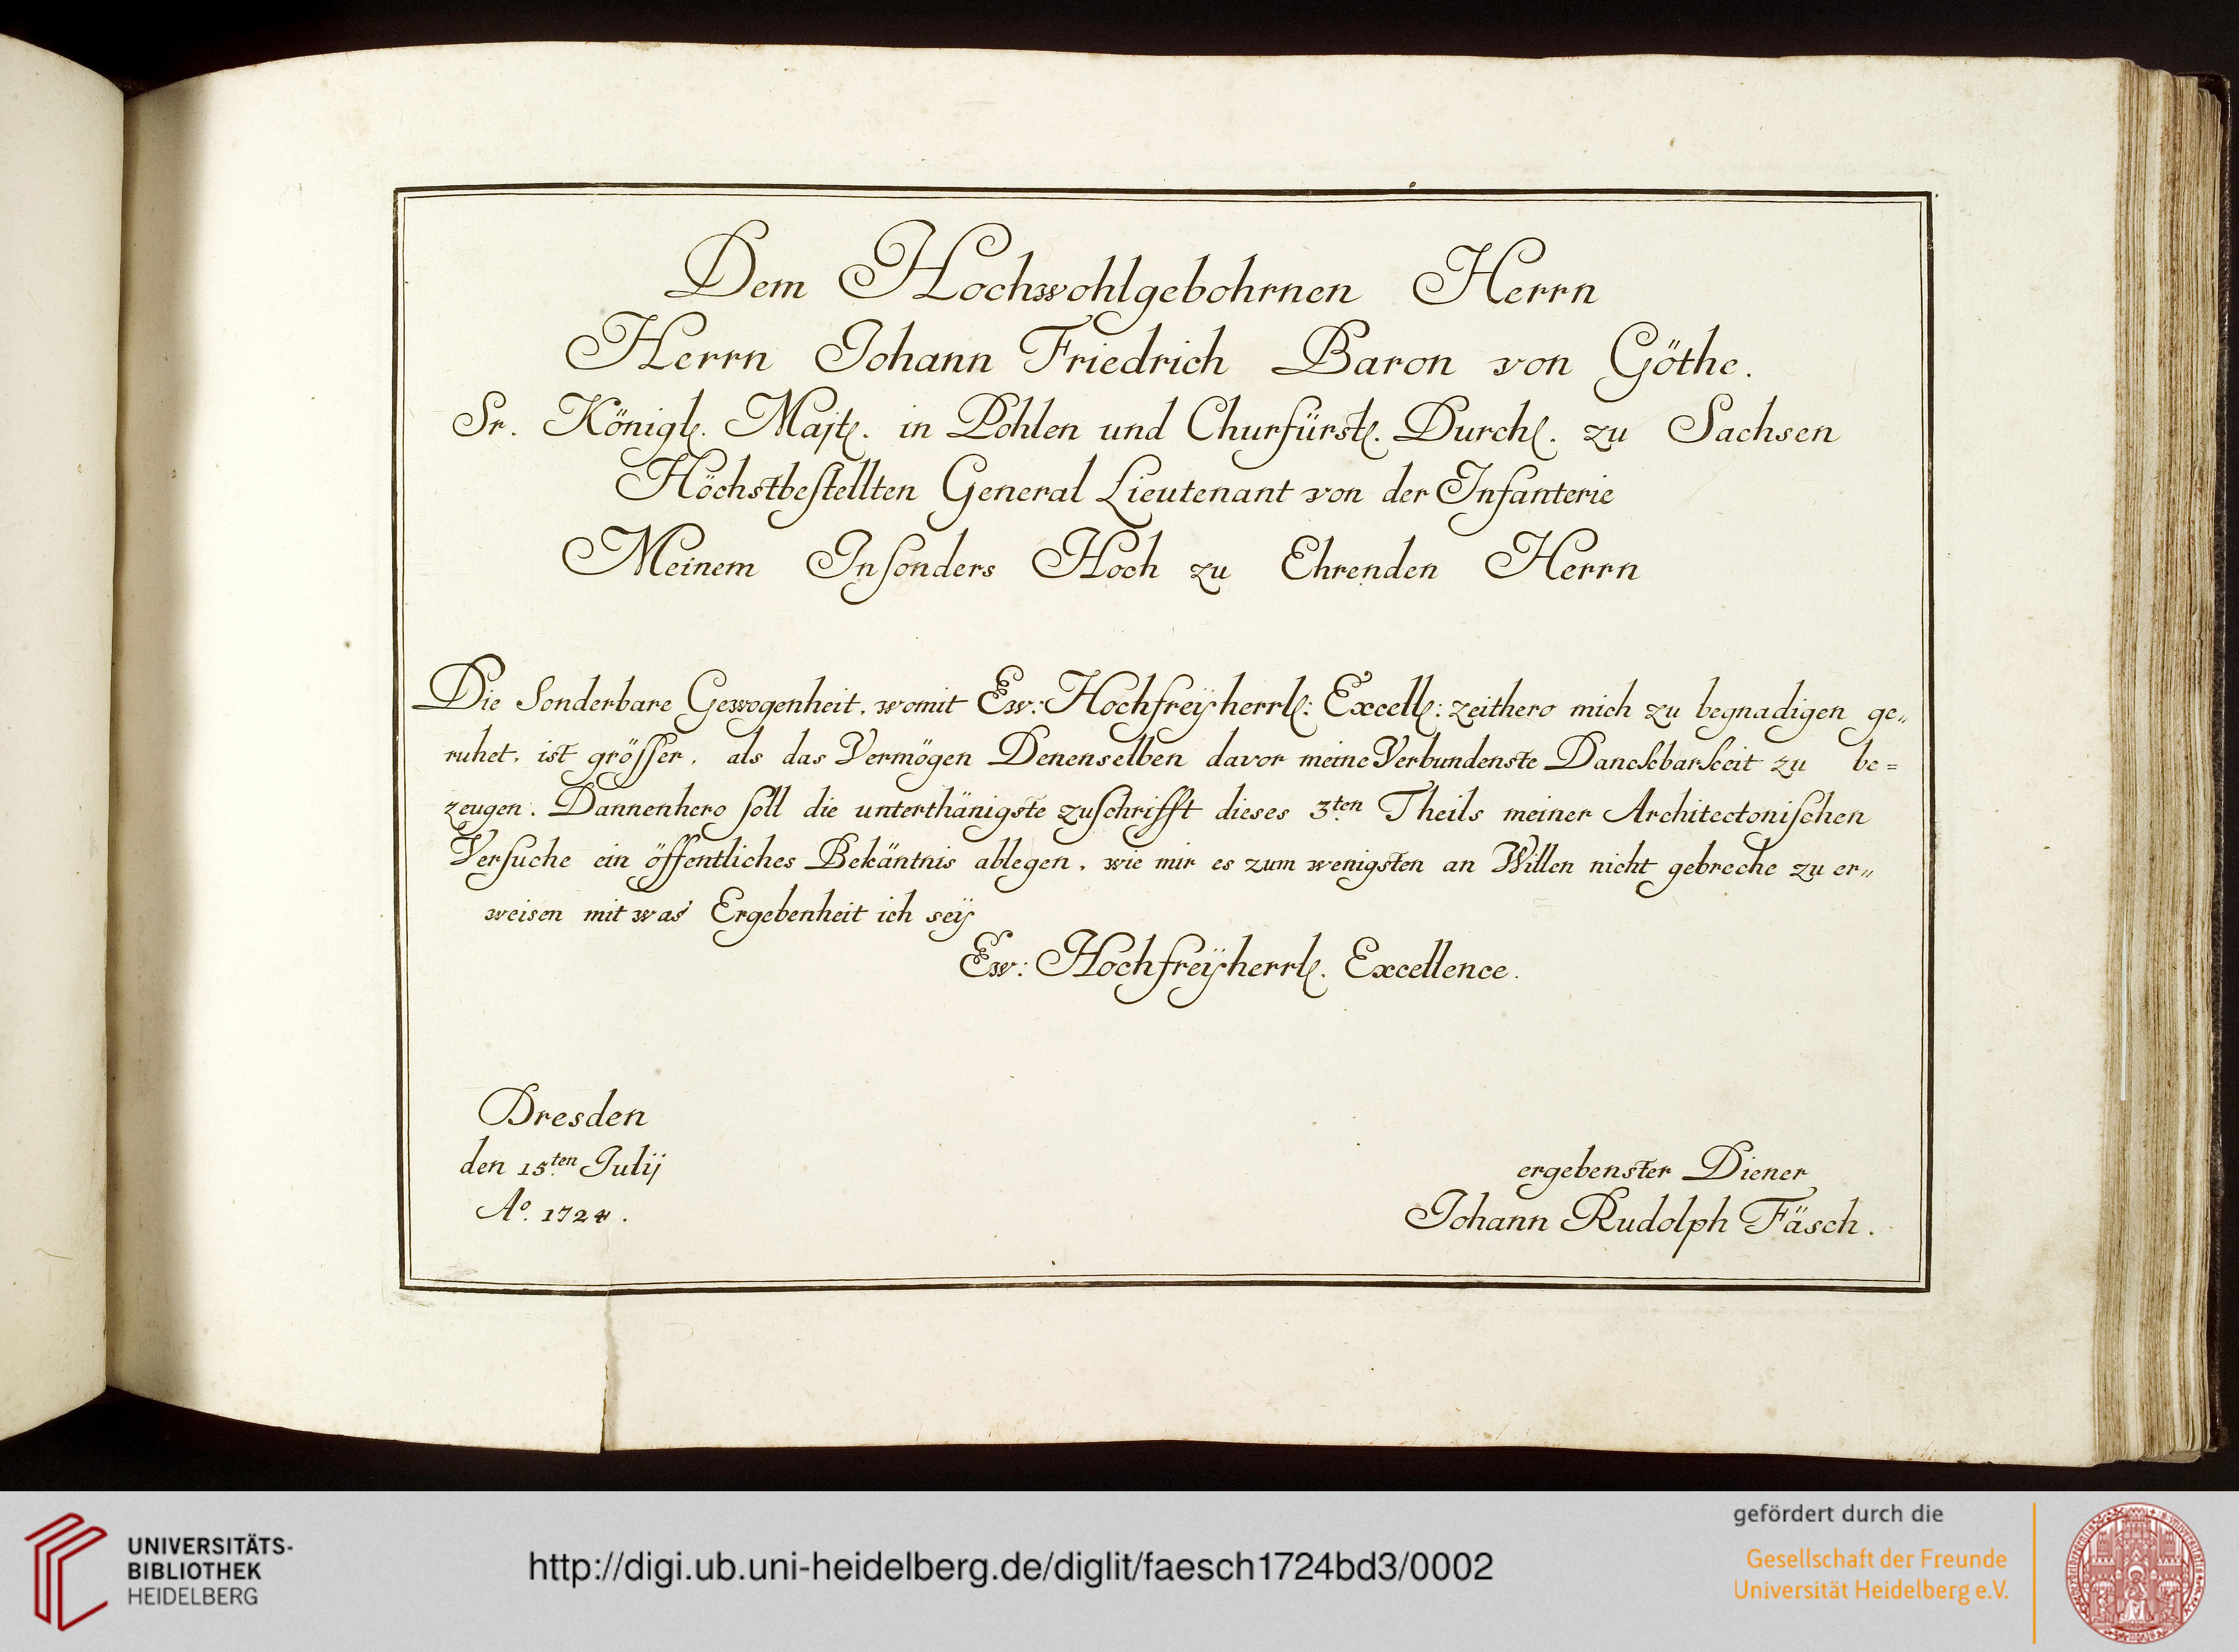 Dem Hochwohlgebohrnen Herrn
Herrn Johann Friedrich Baron von Göthe.
Sr. Königl. Majt. in Pohlen und Churfürstl. Durchl. zu Sachsen
Höchstbestellten General Lieutenant von der Infanterie
Meinem Insonders Hoch zu Ehrenden Herrn
Die Sonderbare Gewogenheit, womit Ew: Hochfreÿherrl: Excell: zeithero mich zu begnadigen ge„
ruhet, ist grösser, als das Vermögen Denenselben davor meine Verbundenste Danckbarkeit zu be=
zeugen. Dannenhero soll die unterthänigste zuschrifft dieses 3ten Theils meiner Architectonischen
Versuche ein öffentliches Bekäntnis ablegen, wie mir es zum wenigsten an Willen nicht gebreche zu er„
weisen mit was Ergebenheit ich seÿ
Ew: Hochfreÿherrl. Excellence.
Dresden
den 15ten Julij
Ao. 1724.
ergebenster Diener
Johann Rudolph Fäsch.
UNIVERSITÄTS-
BIBLIOTHEK
HEIDELBERG
http://digi.ub.uni-heidelberg.de/diglit/faesch1724bd3/0002
gefördert durch die
Gesellschaft der Freunde
Universität Heidelberg e.V.